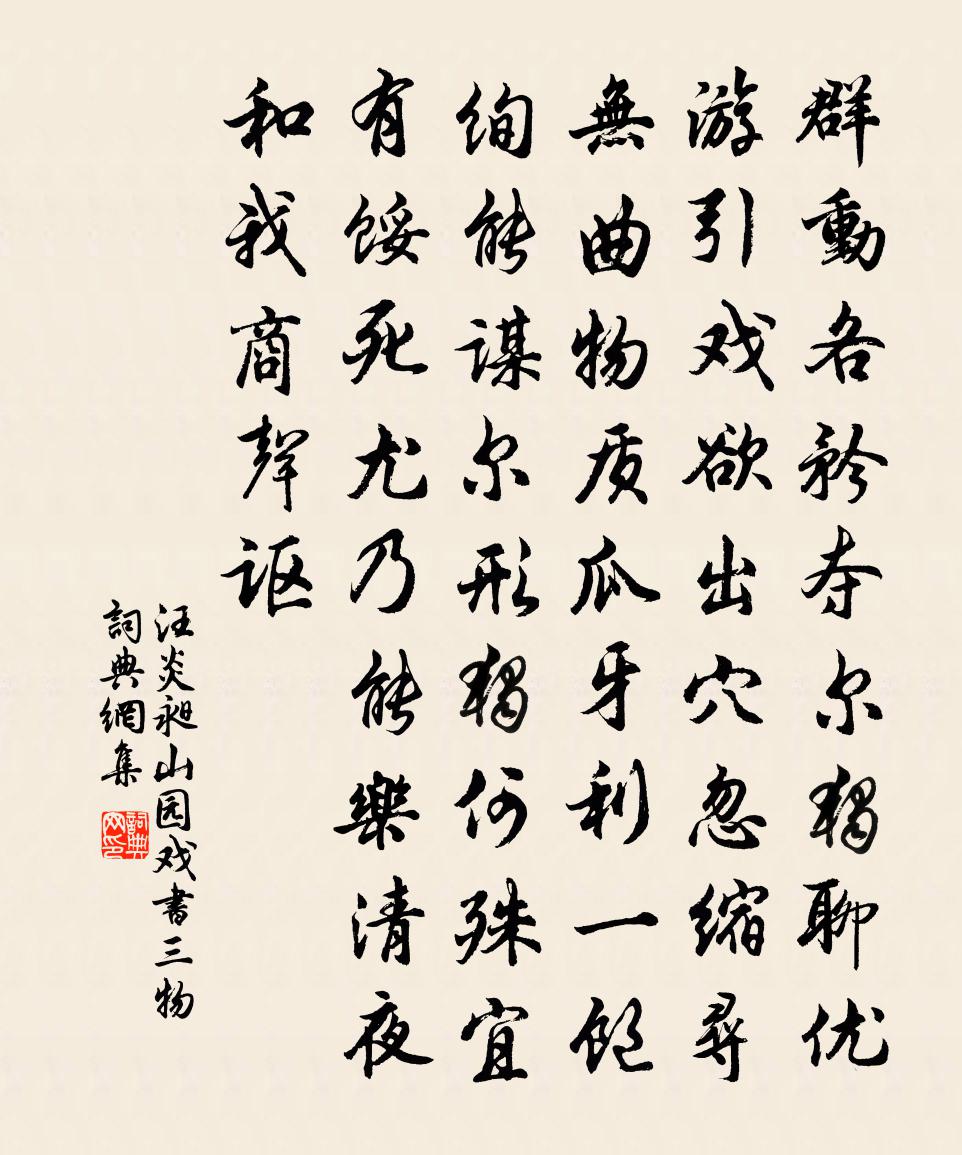 群動各矜夺尔獨聊优
游引戏欲出穴忽缩尋
無曲物质爪牙利一饱
绚能谋尔形獨何殊宜
有馁死尤乃能樂清夜
和我商聲讴
汪炎昶山园戏書三物
詞典網集
詞典网印